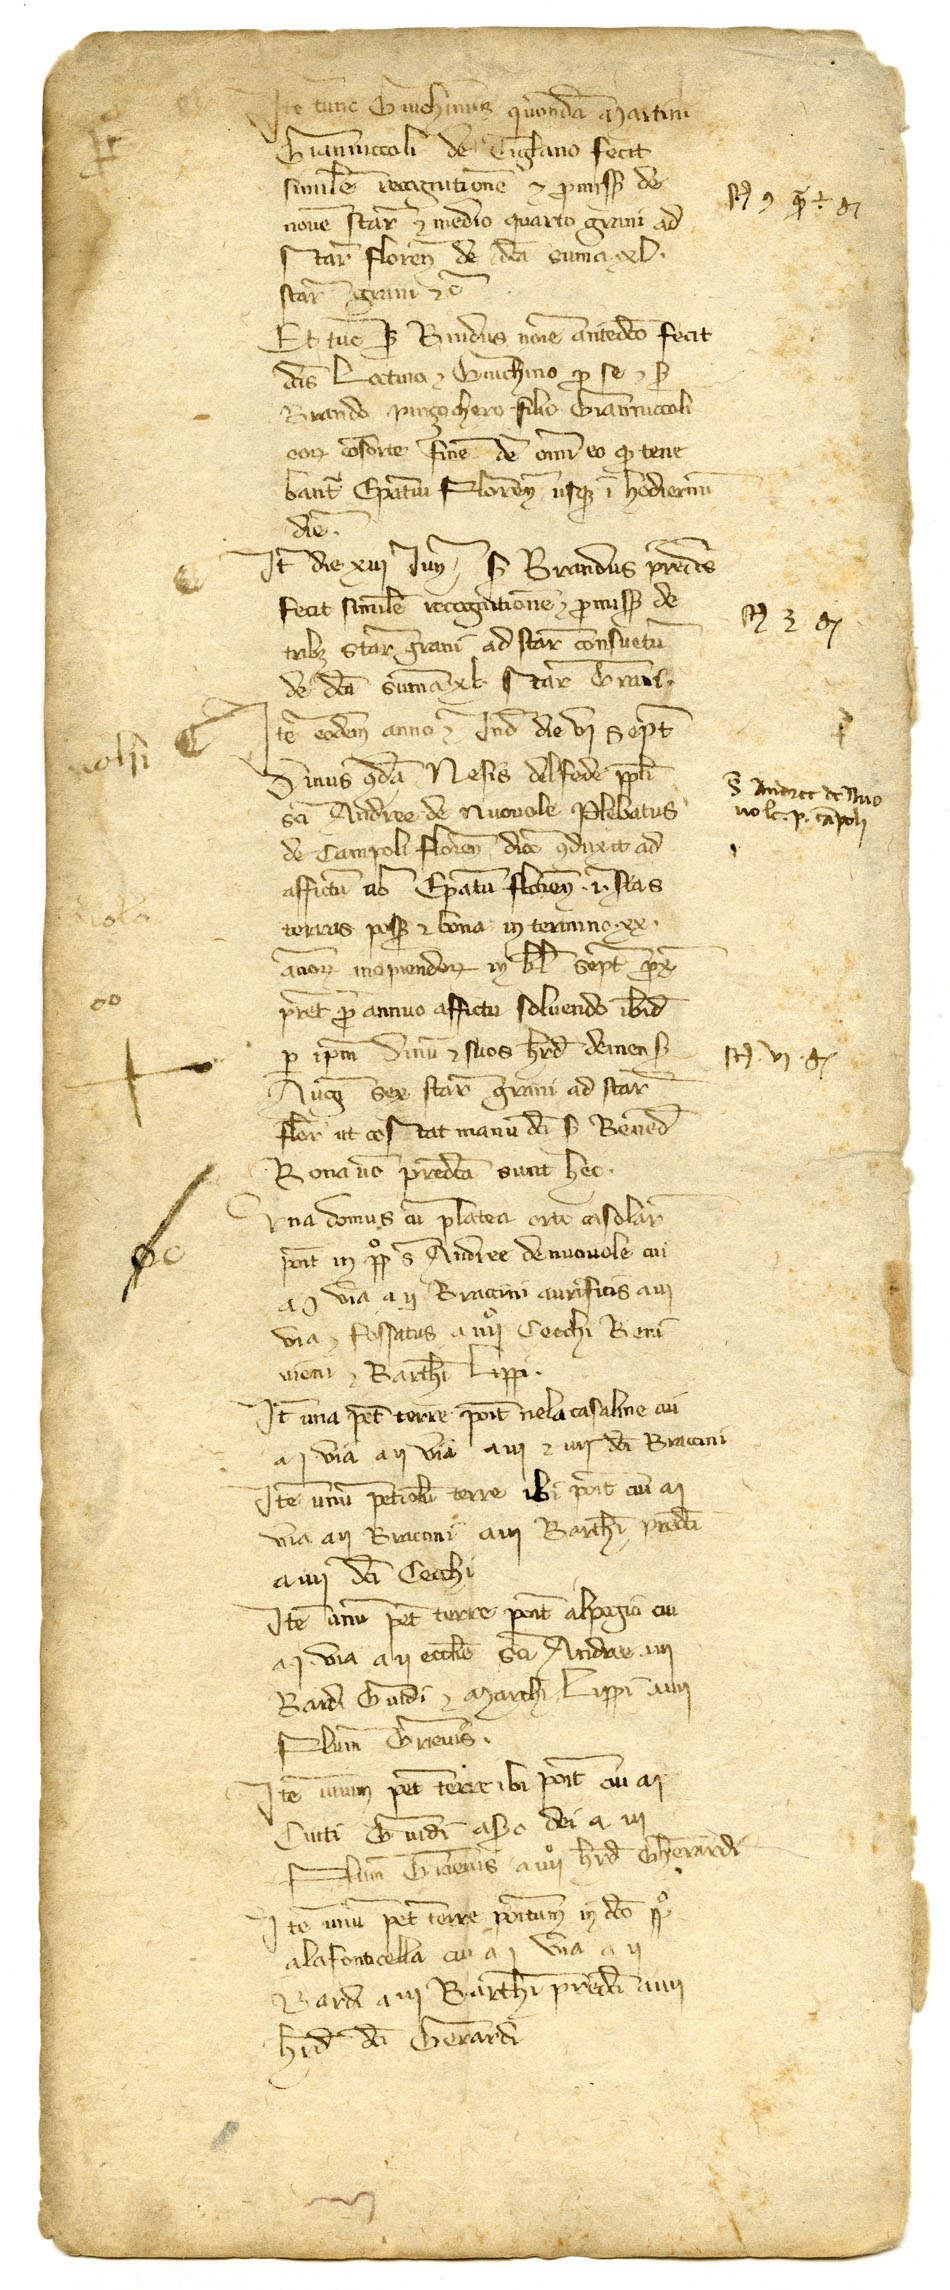 Ite tunc Guichinus quonda Martini
Gianniccoli de Ciglano fecit
simile recognitione et pmiss de
nove star et medio quarto grani ad
star floren de dca suma xl.
star grani etc
Et tuc s Bindus noie antedco fecit
dcis et Guichino p se et s
Brando pinzochero filio Gianniccoli
eor cosorte fine de omi eo q tene
bant Epatui Floren usq i hodiernu
die.
It die xiii Iunii s Brandus predcs
fecit simile recognitione et pmiss de
trib star grani ad star consuetu
de dca suma xl star Grani.
Ite eodem anno et Ind die vi Sept
Dinus qda Nesis del fede ppli
sci Andree de Nuovole Plebatus
de Campoli floren dioc qduxit ad
affictu ab Epatu floren istas
terras poss et bona in termino xx.
annor incipiendor in kl Sept px
pret p annuo affictu solvendo ibid
p ipm Dinu et suos hrd de mens
Aug sex star grani ad star
flor ut costat manu dci s Bened
Bona vo predcta sunt hec.
Una domus cu platea orto casolar
poit in pplo s Andree de nuovole cui
a j via a ij Braccini aurificis a iij
via et fossatus a iiij Cecchi Beni
vieni et Barthi Lippi.
It una pet terre poit nela casaline cui
a j via a ij via a iij et iiij dci Braccini
Ite unu petiolu terre ibi poit cui a j
via a ij Braccini a iij Barthi predci
a iiij dci Cecchi
Ite unu pet terre poit cui
a j via a ij ecclie sci Andree iij
Bardi Guidi et Marchi Lippi a iiij
Flum Grievis.
Ite unum pet terre ibi poit cui a j
Cutti Guidi a ij a iij
Flum Grievis a iiij hrd Gherardi
Ite unu pet terre positum in dco pplo
a la fonticella cui a j via a ij
Bardi a iij Barthi predci a iiij
hrd dci Gerardi
S Andree de Nuo
vole p. Capoli
st vi g